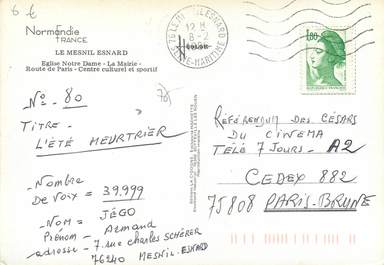 6 €
Normandie
FRANCE
LE MESNIL ESNARD
Eglise Notre Dame - La Mairie -
Route de Paris - Centre culturel et sportif
76 LE MESNIL ESNARD
12 H
8-2
SEINE-MARITIME
1,80
N° - 80
Titre -
L'ÉTÉ MEURTRIER
- Nombre
De voix = 39.999
- Nom = JÉGO
Prénom - Armand
adresse - 7 rue Charles SCHÉRER
76240 MESNIL-ESNARD
RÉFÉRENDUM DES CÉSARS
DU CINEMA
TÉLÉ 7 JOURS - A2
CEDEX 882
75808 PARIS-BRUNE